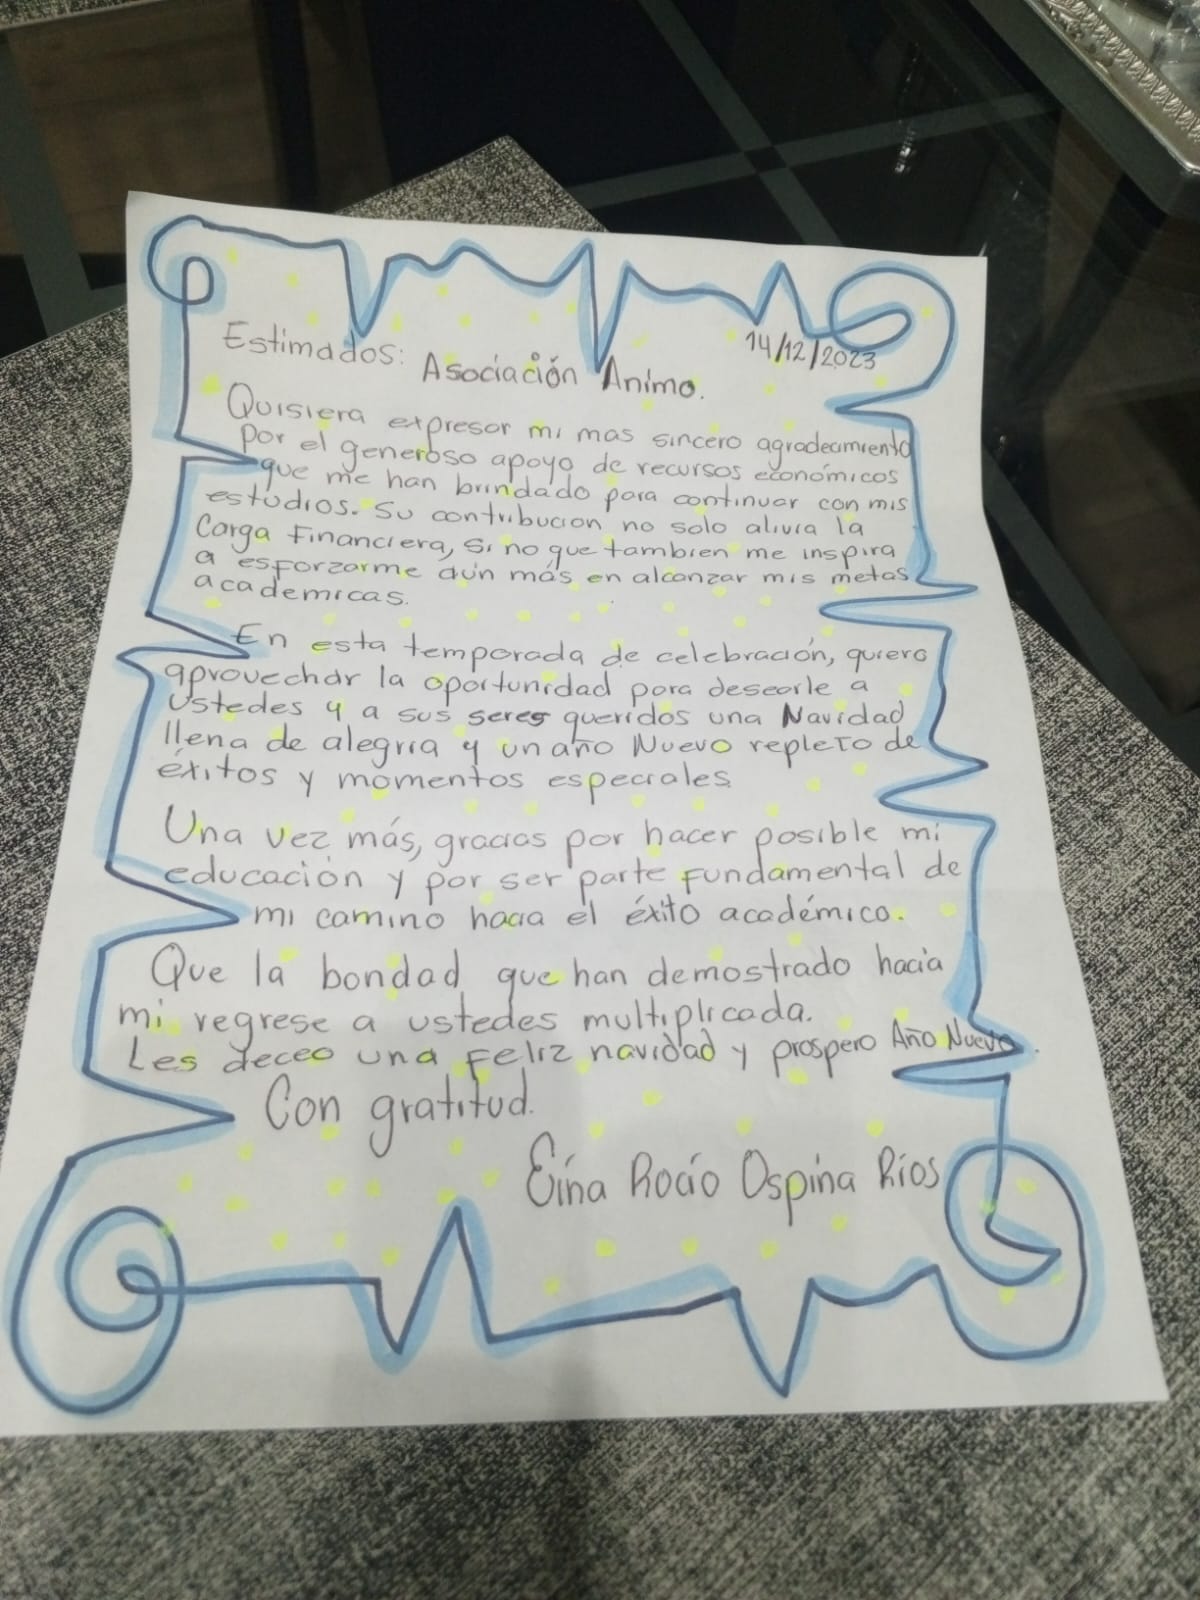 14/12/2023
Estimados: Asociación Animo.
Quisiera expresar mi mas sincero agradecimiento
por el generoso apoyo de recursos económicos
que me han brindado para continuar con mis
estudios. Su contribucion no solo alivia la
Carga Financiera, Si no que tambien me inspira
a esforzarme aún más en alcanzar mis metas
academicas.
En esta temporada de celebración, quiero
aprovechar la oportunidad para desearle a
Ustedes y a sus seres queridos una Navidad
llena de alegria y un año Nuevo repleto de
éxitos y momentos especiales
Una vez más, gracias por hacer posible mi
educación y por ser parte fundamental de
mi camino hacia el éxito académico.
Que la bondad que han demostrado hacia
mi regrese a ustedes multiplicada.
Les deceo una Feliz navidad y prospero Año Nuevo.
Con gratitud.
Eina Rocío Ospina Ríos